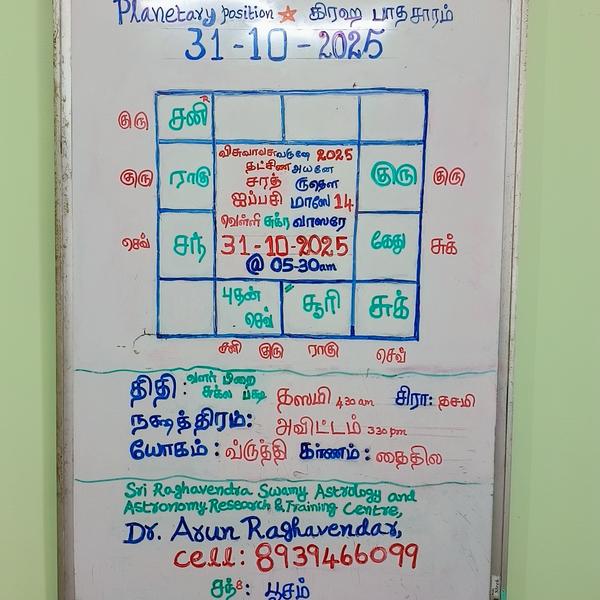 Planetary position ☆ கிரஹ பாதசாரம்
31-10-2025
குரு சனி R
குரு ராகு விசுவாவசு வருஷே 2025 குரு குரு
தட்சிண அயனே
சரத் ருதௌ
ஐப்பசி மாஸே 14
வெள்ளி சுக்ர வாஸரே
செவ் சந் 31-10-2025 கேது சுக்
@ 05-30am
புதன் செவ் சூரி சுக்
சனி குரு ராகு செவ்
திதி: வளர் பிறை சுக்ல பக்ஷ தஸமி 4.30 am சிரா: தசமி
நக்ஷத்திரம்: அவிட்டம் 3.30 pm
யோகம்: வ்ருத்தி கரணம்: தைதில
Sri Raghavendra Swamy Astrology and
Astronomy Research & Training Centre,
Dr. Arun Raghavendar,
Cell: 8939466099
சந் 8: பூசம்